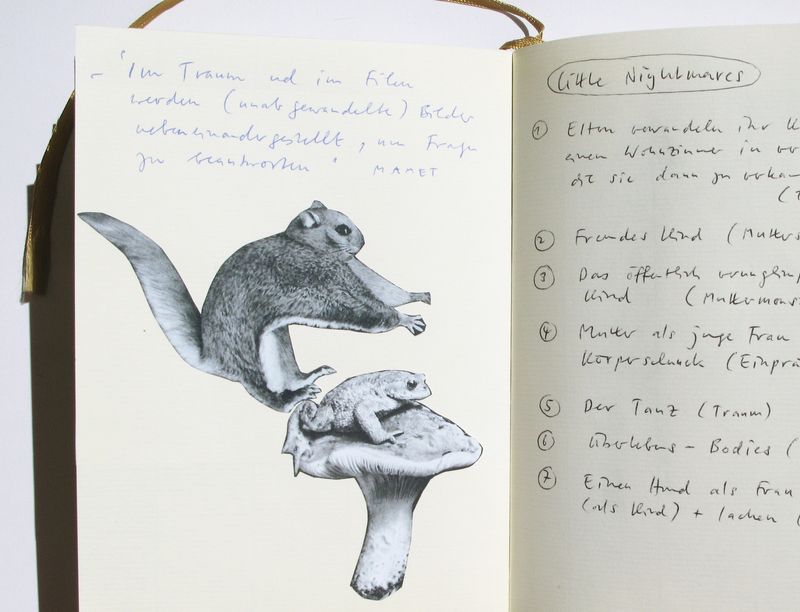 - "Im Traum und im Film
werden (unabgewandelte) Bilder
nebeneinandergestellt, um Fragen
zu beantworten" MAMET
little Nightmares
① Eltern verwandeln ihr
einen Wohnzimmer in
sie dann zu
② Fremdes Kind (Mutters
③ Das öffentlich verunglimp
Kind (Muttermons
④ Mutter als junge Frau
Körperschmuck (Einprä
⑤ Der Tanz (Traum)
⑥ Überlebens-Bodies (
⑦ Einen Hund als Frau
(als Kind) + lachen (